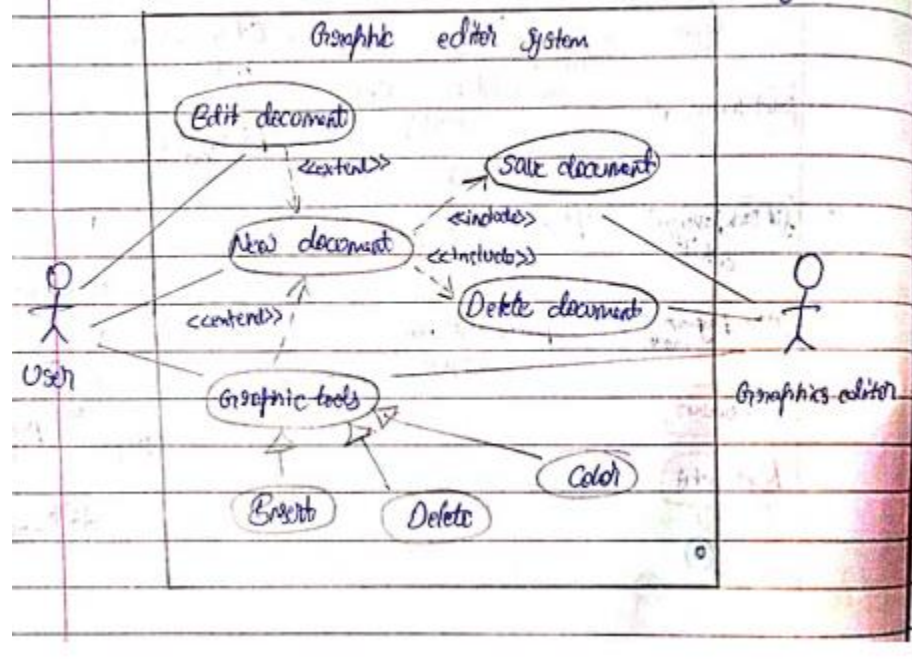 Graphic editor System
Edit document
<<extend>>
Save document
<<includes>>
New document
<<includes>>
Delete document
<<extend>>
User
Graphic tools
Graphics editor
Color
Insert
Delete